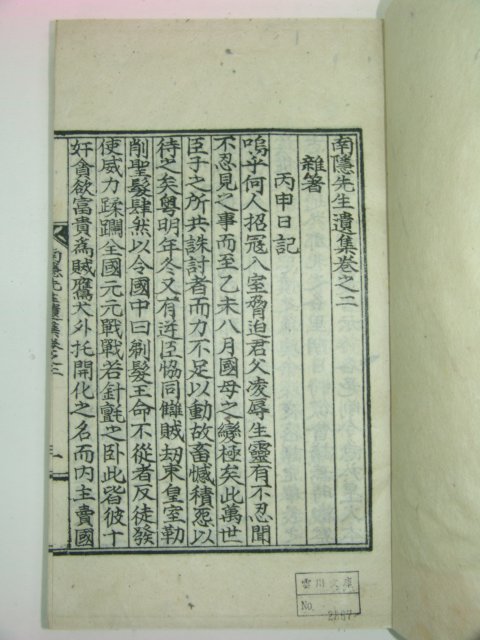 南隱先生遺集卷之二
雜著
丙申日記
嗚乎何人招冦入室脅迫君父凌辱生靈有不忍聞
不忍見之事而至乙未八月國母之變極矣此萬世
臣子之所共誅討者而力不足以動故畜憾積忍以
待之矣粤明年冬又有逆臣恊同讎賊劫束皇室勒
削聖髮肆然以令國中曰剃髮王命不從者反徒發
使威力蹂躙全國元元戰戰若針氈之卧此皆彼十
奸貪欲富貴為賊鷹犬外托開化之名而内主賣國
南隱先生遺集卷之二
一
雲川文庫
No.